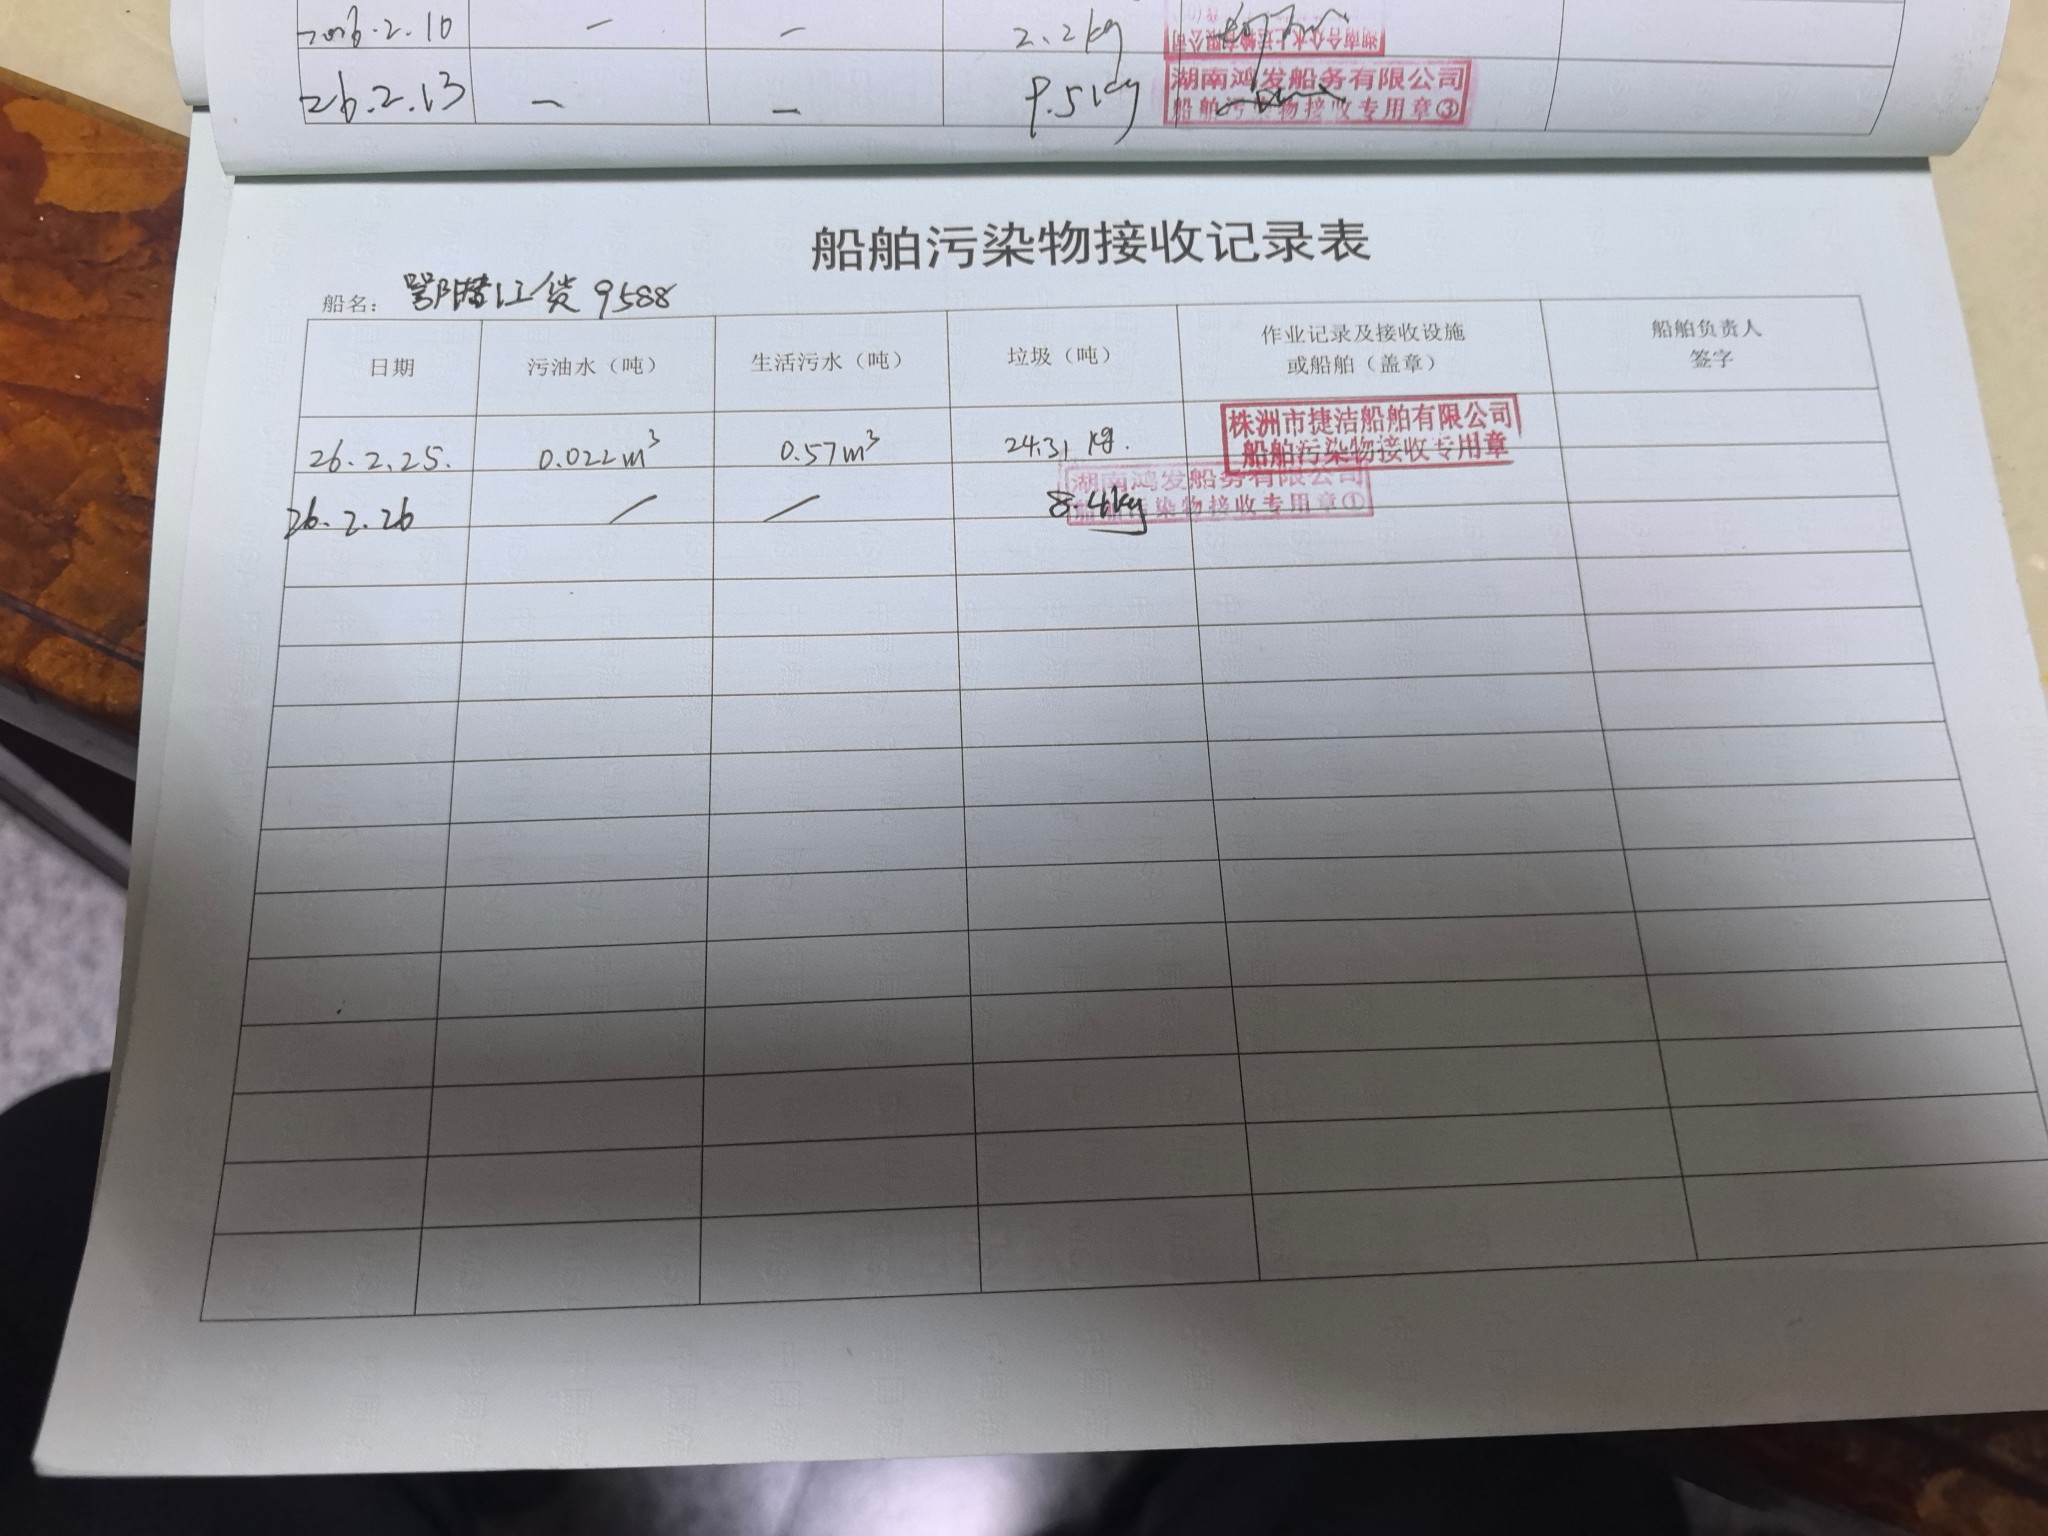 2026.2.10 — — 2.2kg
湖南合众水上运输有限公司
26.2.13 — — 9.51kg
湖南鸿发船务有限公司
船舶污染物接收专用章③
船舶污染物接收记录表
船名: 鄂潜江货9588
日期 污油水（吨） 生活污水（吨） 垃圾（吨） 作业记录及接收设施 船舶负责人
或船舶（盖章） 签字
26.2.25. 0.022m³ 0.57m³ 24.31 kg.
株洲市捷洁船舶有限公司
船舶污染物接收专用章
26.2.26 / / 8.41kg
湖南鸿发船务有限公司
船舶污染物接收专用章①